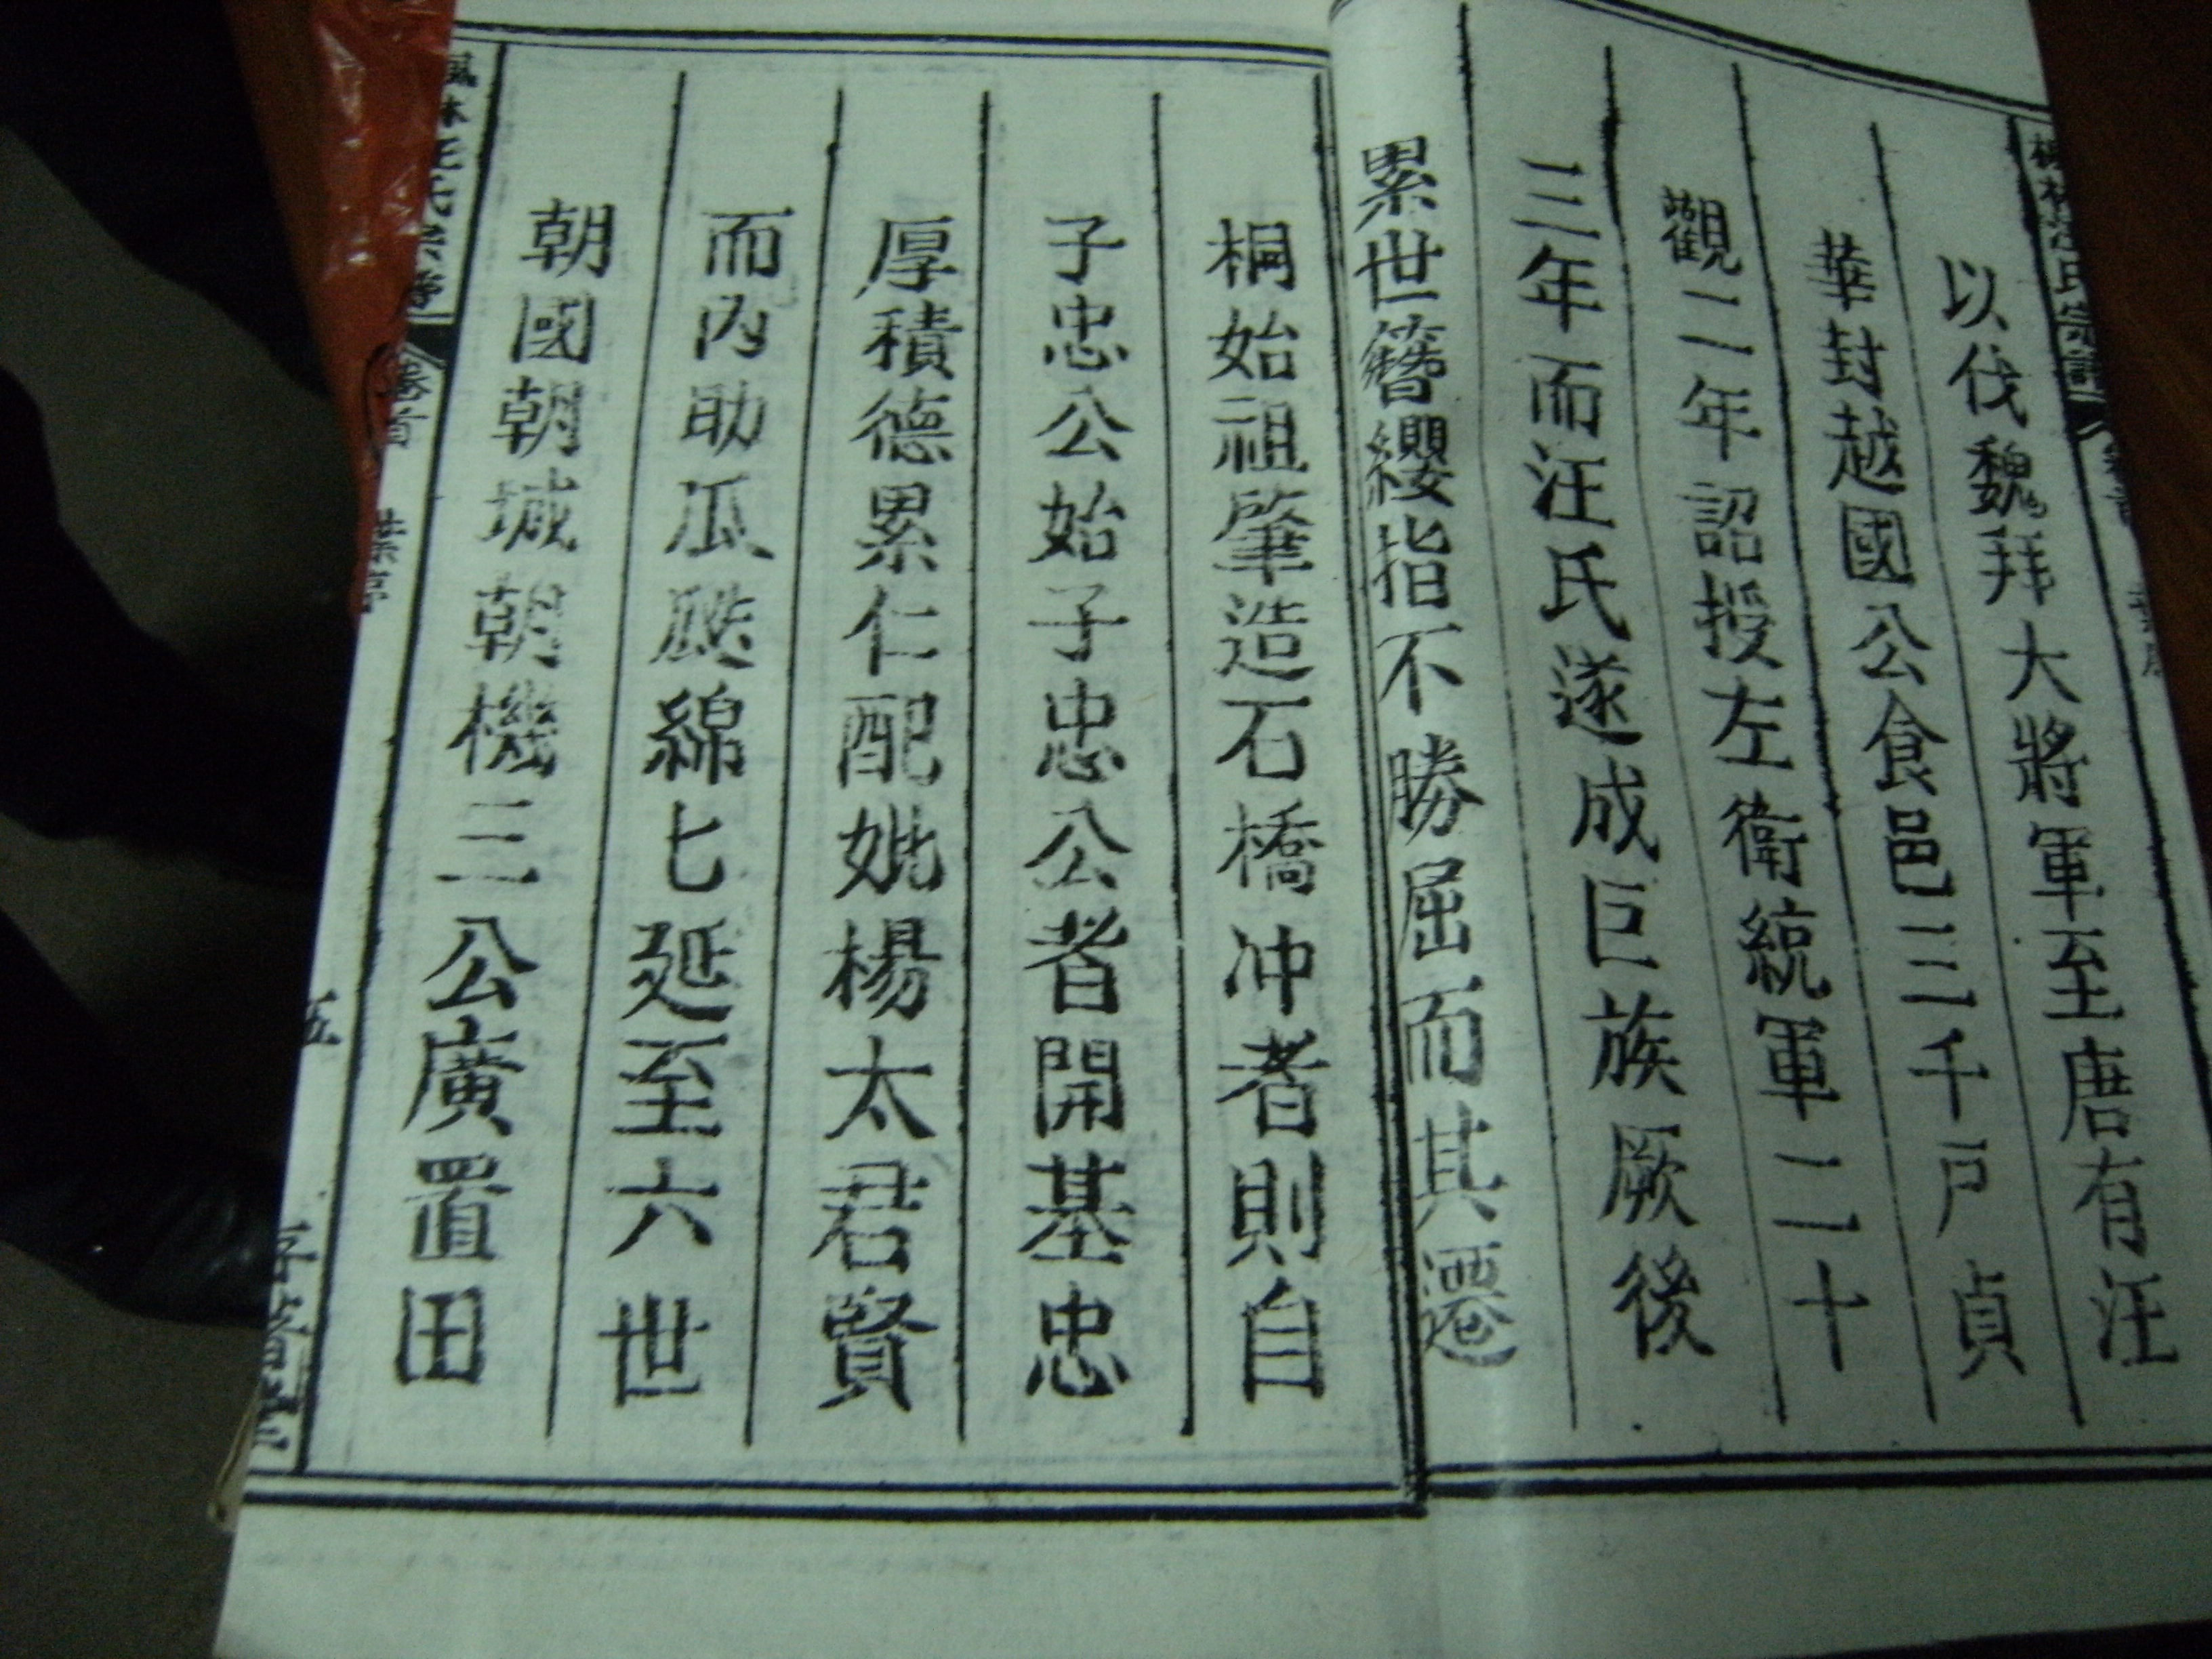 以伐魏拜大將軍至唐有汪
華封越國公食邑三千戶貞
觀二年詔授左衛統軍二十
三年而汪氏遂成巨族厥後
累世簪纓指不勝屈而其遷
桐始祖肇造石橋冲者則自
子忠公始子忠公者開基忠
厚積德累仁配妣楊太君賢
而內助瓜瓞綿七延至六世
朝國朝城朝機三公廣置田
卷首
五